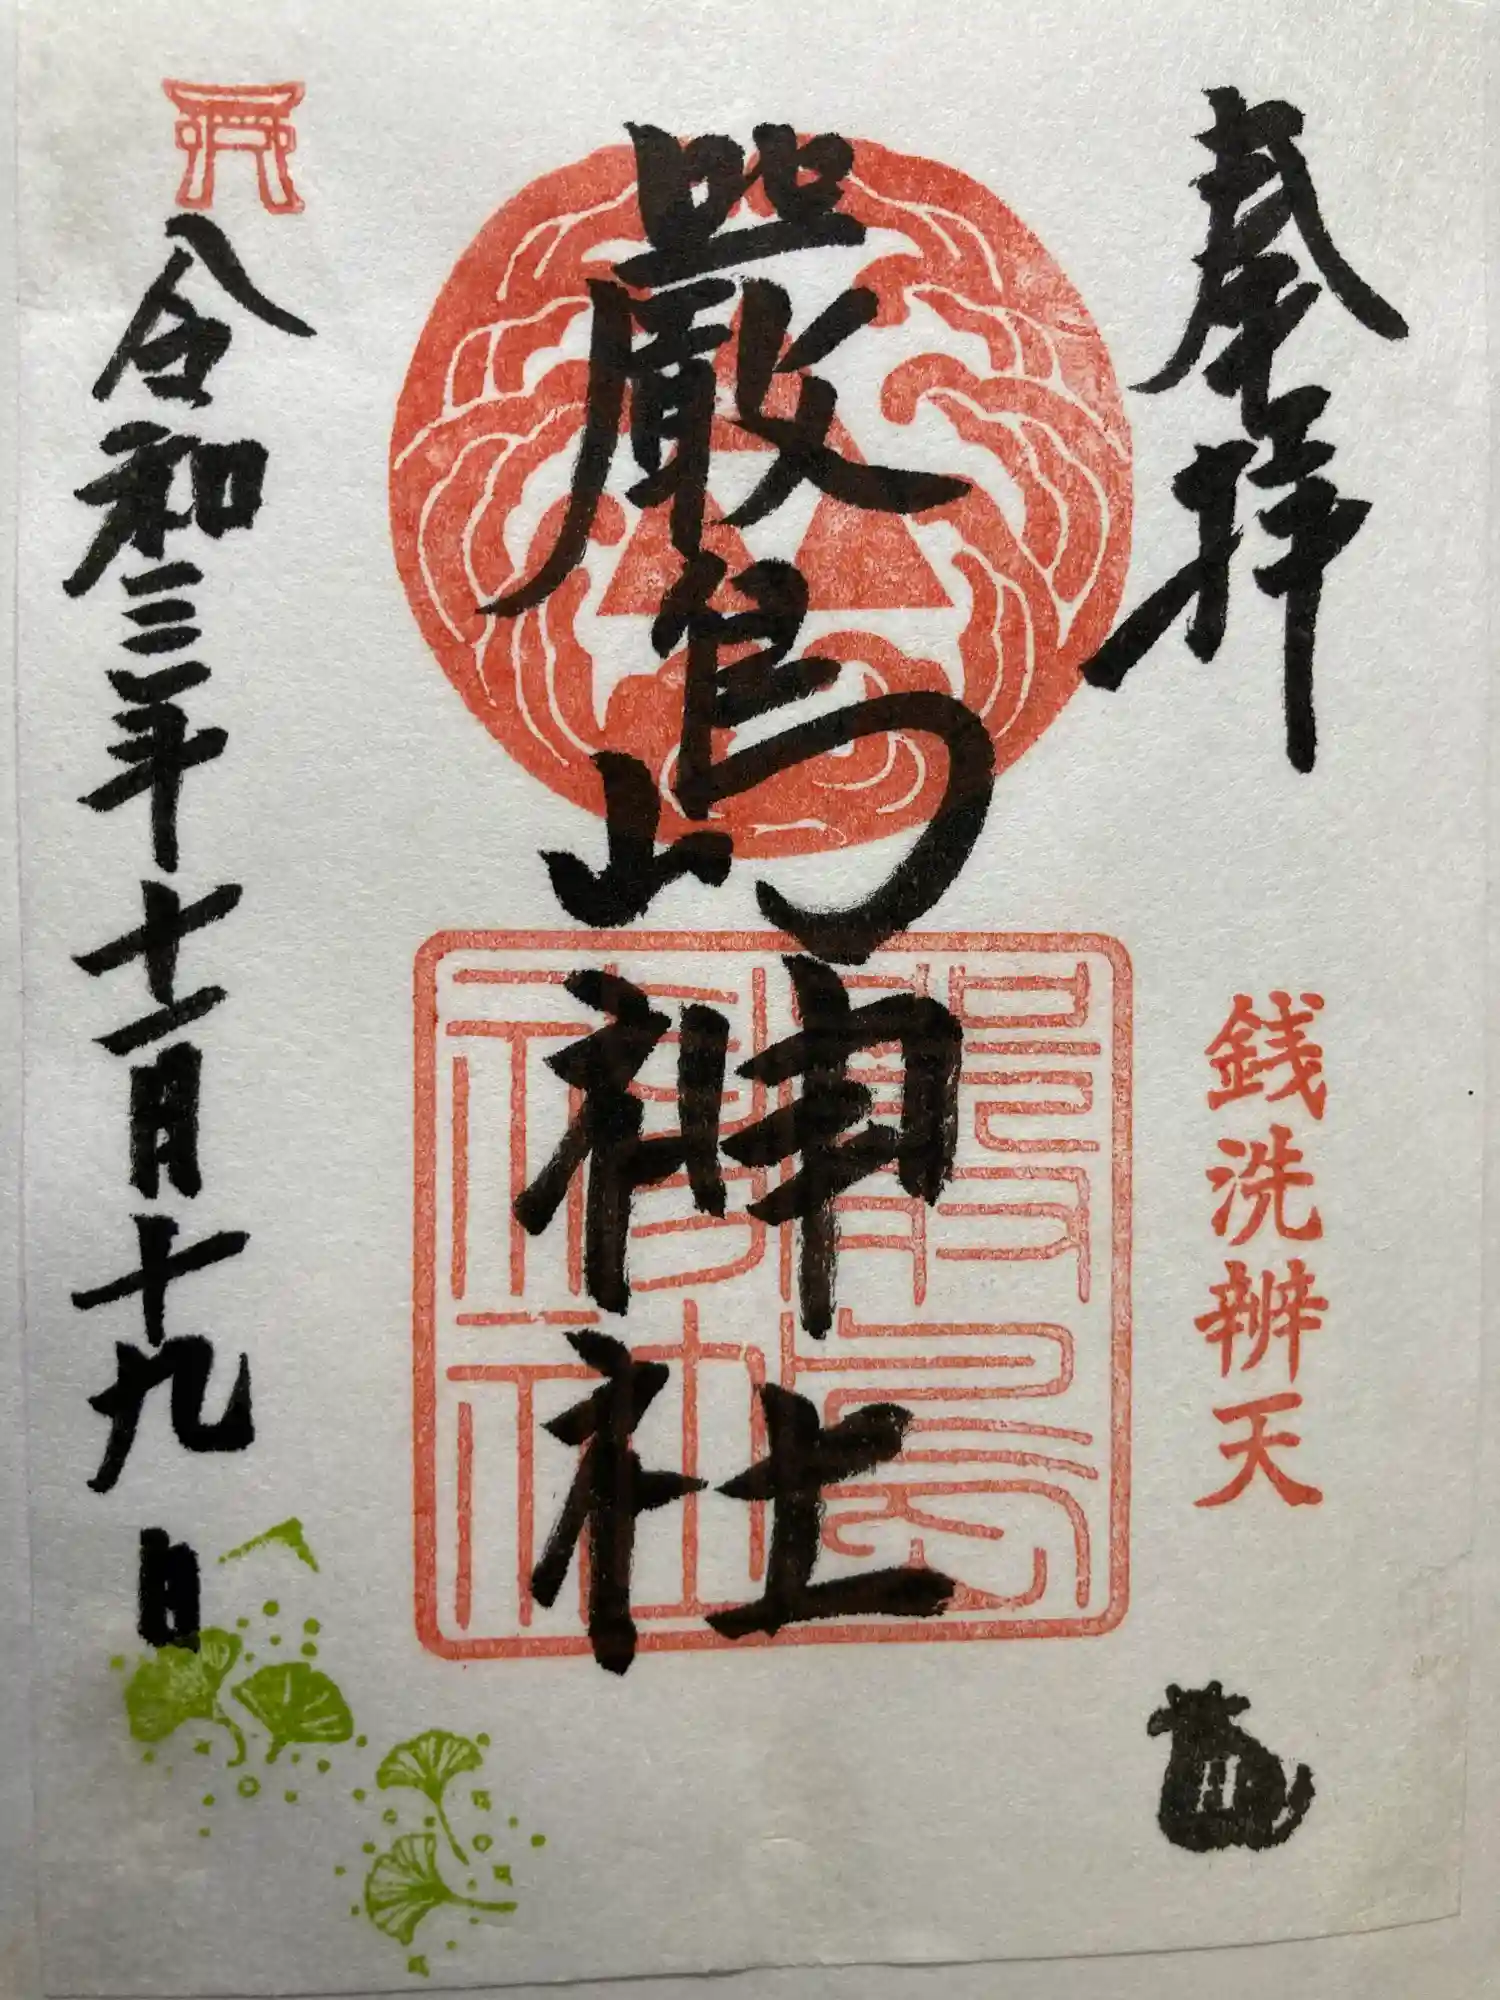 奉拝
銭洗辨天
嚴島神社
嚴島神社
令和三年十一月十九日